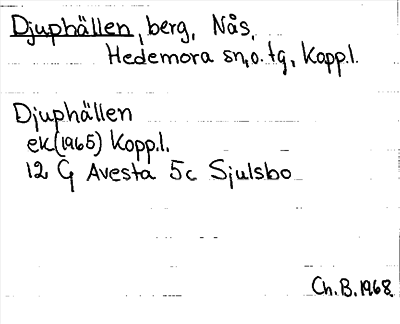 Djuphällen, berg, Nås,
Hedemora sn, o. tg, Kopp.l.
Djuphällen
ek(1965) Kopp.l.
12 G Avesta 5c Sjulsbo
Ch.B.1968